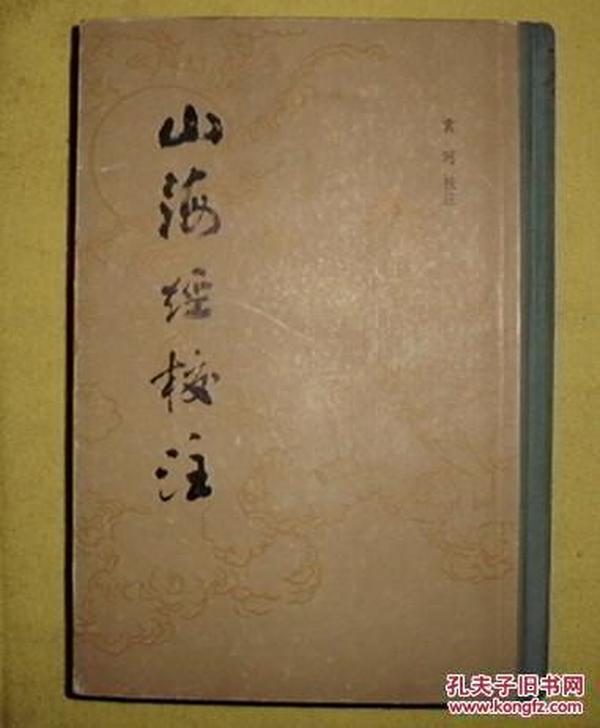 山海經校注
袁珂校注
孔夫子旧书网
www.kongfz.com